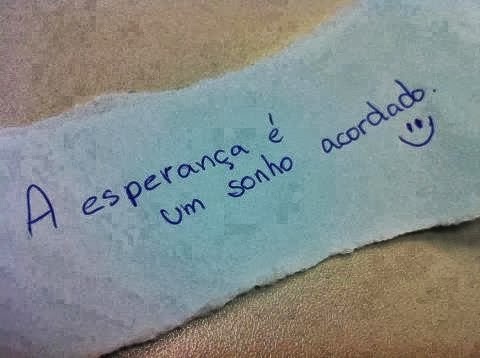 A esperança é
um sonho acordado.